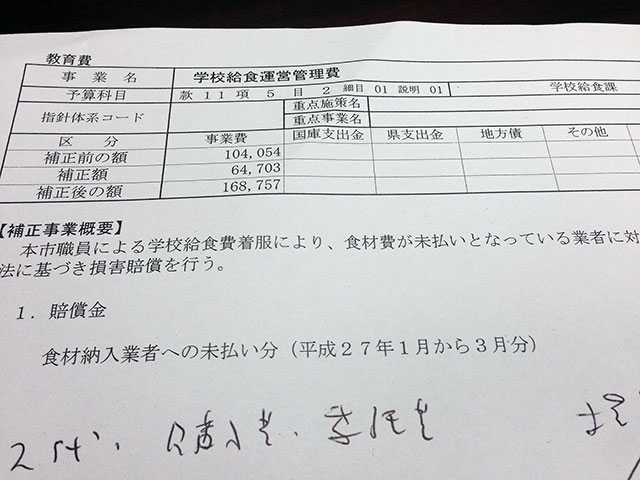 教育費
事業名 学校給食運営管理費
予算科目 款 11 項 5 目 2 細目 01 説明 01 学校給食課
指針体系コード 重点施策名
重点事業名
区分 事業費 国庫支出金 県支出金 地方債 その他
補正前の額 104,054
補正額 64,703
補正後の額 168,757
【補正事業概要】
本市職員による学校給食費着服により、食材費が未払いとなっている業者に対
法に基づき損害賠償を行う。
1.賠償金
食材納入業者への未払い分（平成27年1月から3月分）